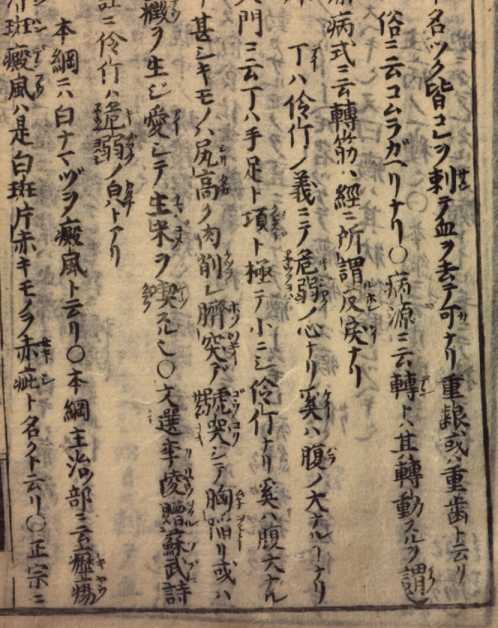 名ツク皆コレヲ刺テ血ヲ去テ可ナリ重齦或ハ重歯ト云リ
俗ニ云コムラガヘリナリ〇病源ニ云轉トハ其轉動スルヲ謂
病式ニ云轉筋ハ經ニ所謂反戾ナリ
丁ハ伶仃ノ義ニテ危弱ノ心ナリ奚ハ腹ノ大ナルナリ
門ニ云丁ハ手足ト項ト極テ小ニシ伶仃ナリ奚ハ腹大ナル
甚シキモノハ尻高ク肉削レ臍突デ號哭シテ胸陷リ或ハ
癥ヲ生シ愛シテ生米ヲ喫スル也〇文選李陵贈蘇武詩
註ニ伶仃ハ危弱ノ皃トアリ
本綱ニハ白ナマヅヲ癜風ト云リ〇本綱主治ノ部ニ云癧瘍
斑癜風ハ是白斑片赤キモノヲ赤疵ト名クト云リ〇正宗ニ